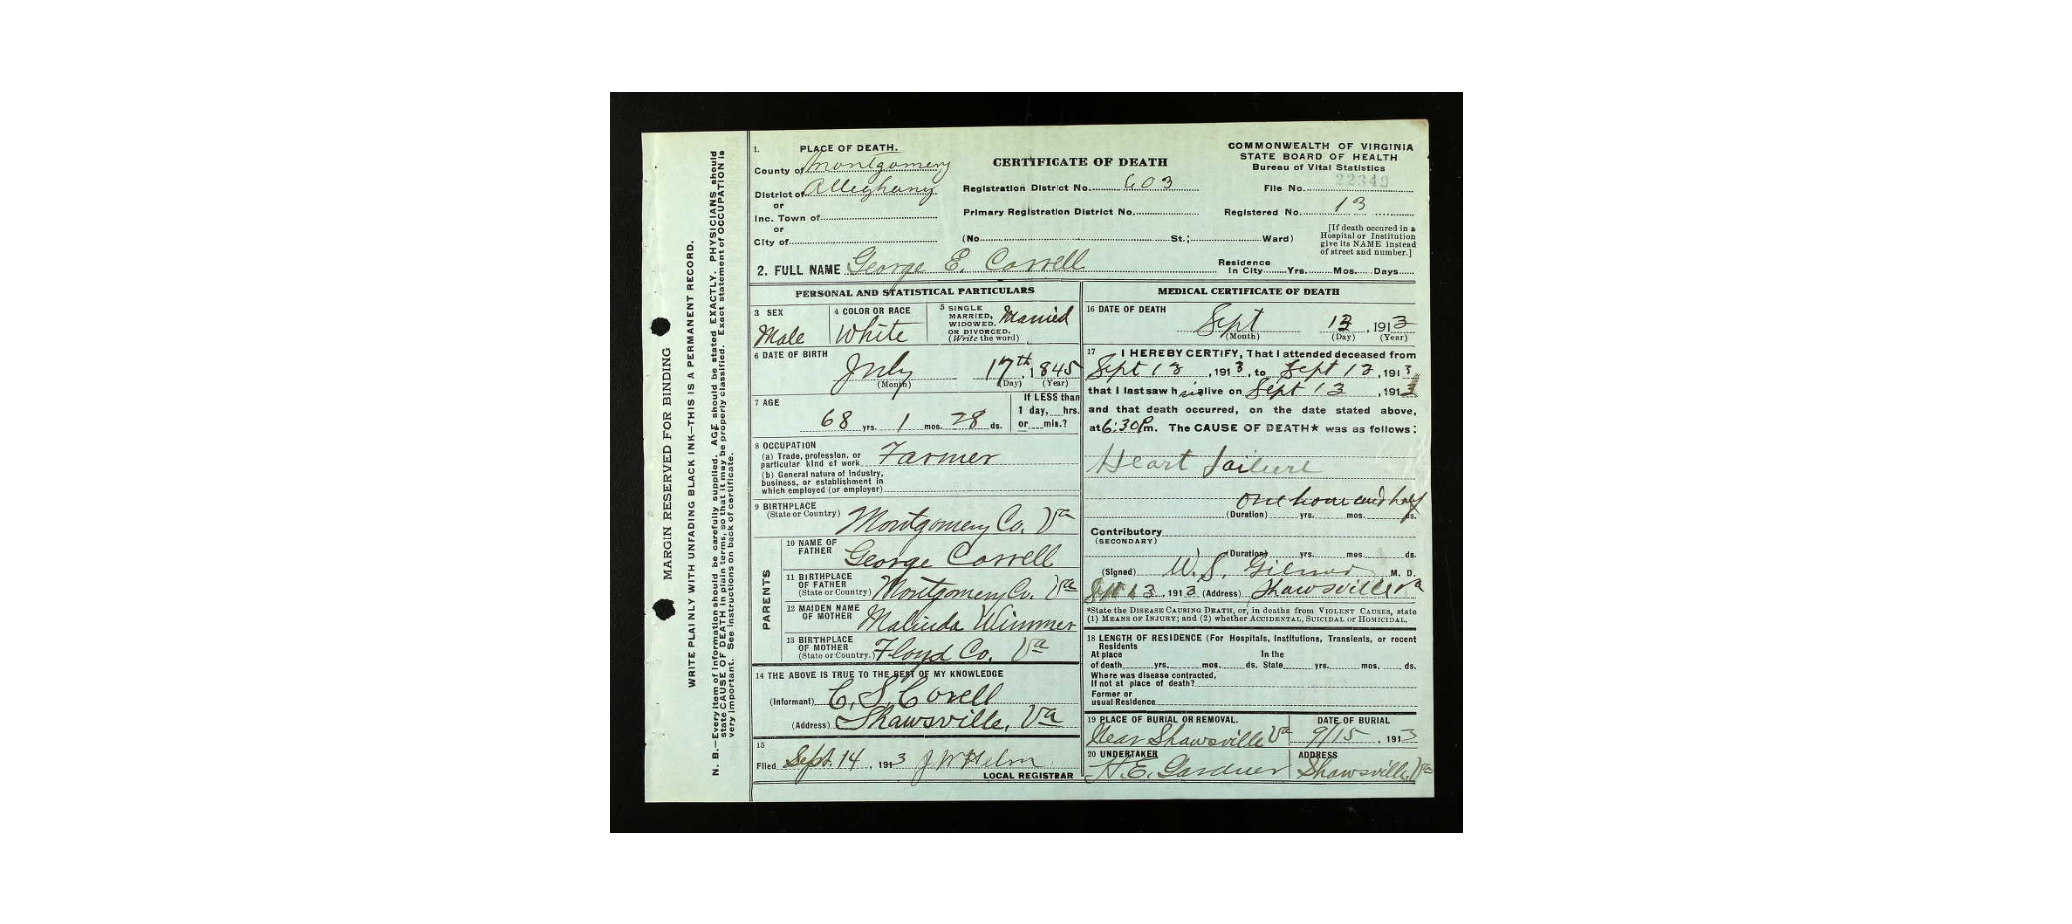 MARGIN RESERVED FOR BINDING
WRITE PLAINLY WITH UNFADING BLACK INK—THIS IS A PERMANENT RECORD.
N. B.—Every item of information should be carefully supplied. AGE should be stated EXACTLY. PHYSICIANS should
state CAUSE OF DEATH in plain terms, so that it may be properly classified. Exact statement of OCCUPATION is
very important. See instructions on back of certificate.
1. PLACE OF DEATH.
County of Montgomery
District of Alleghany
or
Inc. Town of
or
City of
CERTIFICATE OF DEATH
Registration District No. 603
Primary Registration District No.
(No. St.; Ward)
COMMONWEALTH OF VIRGINIA
STATE BOARD OF HEALTH
Bureau of Vital Statistics
File No. 22349
Registered No. 13
[If death occured in a
Hospital or Institution
give its NAME instead
of street and number.]
2. FULL NAME George E. Correll
Residence
In City Yrs. Mos. Days
PERSONAL AND STATISTICAL PARTICULARS
3 SEX
Male
4 COLOR OR RACE
White
5 SINGLE
MARRIED, Married
WIDOWED.
OR DIVORCED.
(Write the word)
6 DATE OF BIRTH
July 17th, 1845
(Month) (Day) (Year)
7 AGE
68 yrs. 1 mos. 28 ds.
If LESS than
1 day, hrs.
or min.?
8 OCCUPATION
(a) Trade, profession, or
particular kind of work Farmer
(b) General nature of industry,
business, or establishment in
which employed (or employer)
9 BIRTHPLACE
(State or Country) Montgomery Co. Va
PARENTS
10 NAME OF
FATHER George Correll
11 BIRTHPLACE
OF FATHER
(State or Country) Montgomery Co. Va
12 MAIDEN NAME
OF MOTHER Malinda Wimmer
13 BIRTHPLACE
OF MOTHER
(State or Country.) Floyd Co. Va
14 THE ABOVE IS TRUE TO THE BEST OF MY KNOWLEDGE
(Informant) C. S. Corell
(Address) Shawsville, Va
15
Filed Sept. 14, 1913 J W Helm
LOCAL REGISTRAR
MEDICAL CERTIFICATE OF DEATH
16 DATE OF DEATH
Sept 13, 1913
(Month) (Day) (Year)
17 I HEREBY CERTIFY, That I attended deceased from
Sept 13, 1913, to Sept 13, 1913
that I last saw him alive on Sept 13 1913
and that death occurred, on the date stated above,
at 6:30 Pm. The CAUSE OF DEATH* was as follows:
Heart failure
one hour and half
(Duration) yrs. mos. ds.
Contributory
(SECONDARY)
(Duration) yrs. mos. ds.
(Signed) W. S. Gilmer M. D.
Sept 13, 1913 (Address) Shawsville Va
*State the DISEASE CAUSING DEATH, or, in deaths from VIOLENT CAUSES, state
(1) MEANS OF INJURY; and (2) whether ACCIDENTAL, SUICIDAL or HOMICIDAL.
18 LENGTH OF RESIDENCE (For Hospitals, Institutions, Transients, or recent
Residents
At place In the
of death yrs. mos. ds. State yrs. mos. ds.
Where was disease contracted,
If not at place of death?
Former or
usual Residence
19 PLACE OF BURIAL OR REMOVAL.
Near Shawsville Va
DATE OF BURIAL
9/15, 1913
20 UNDERTAKER
H. E. Gardner
ADDRESS
Shawsville Va